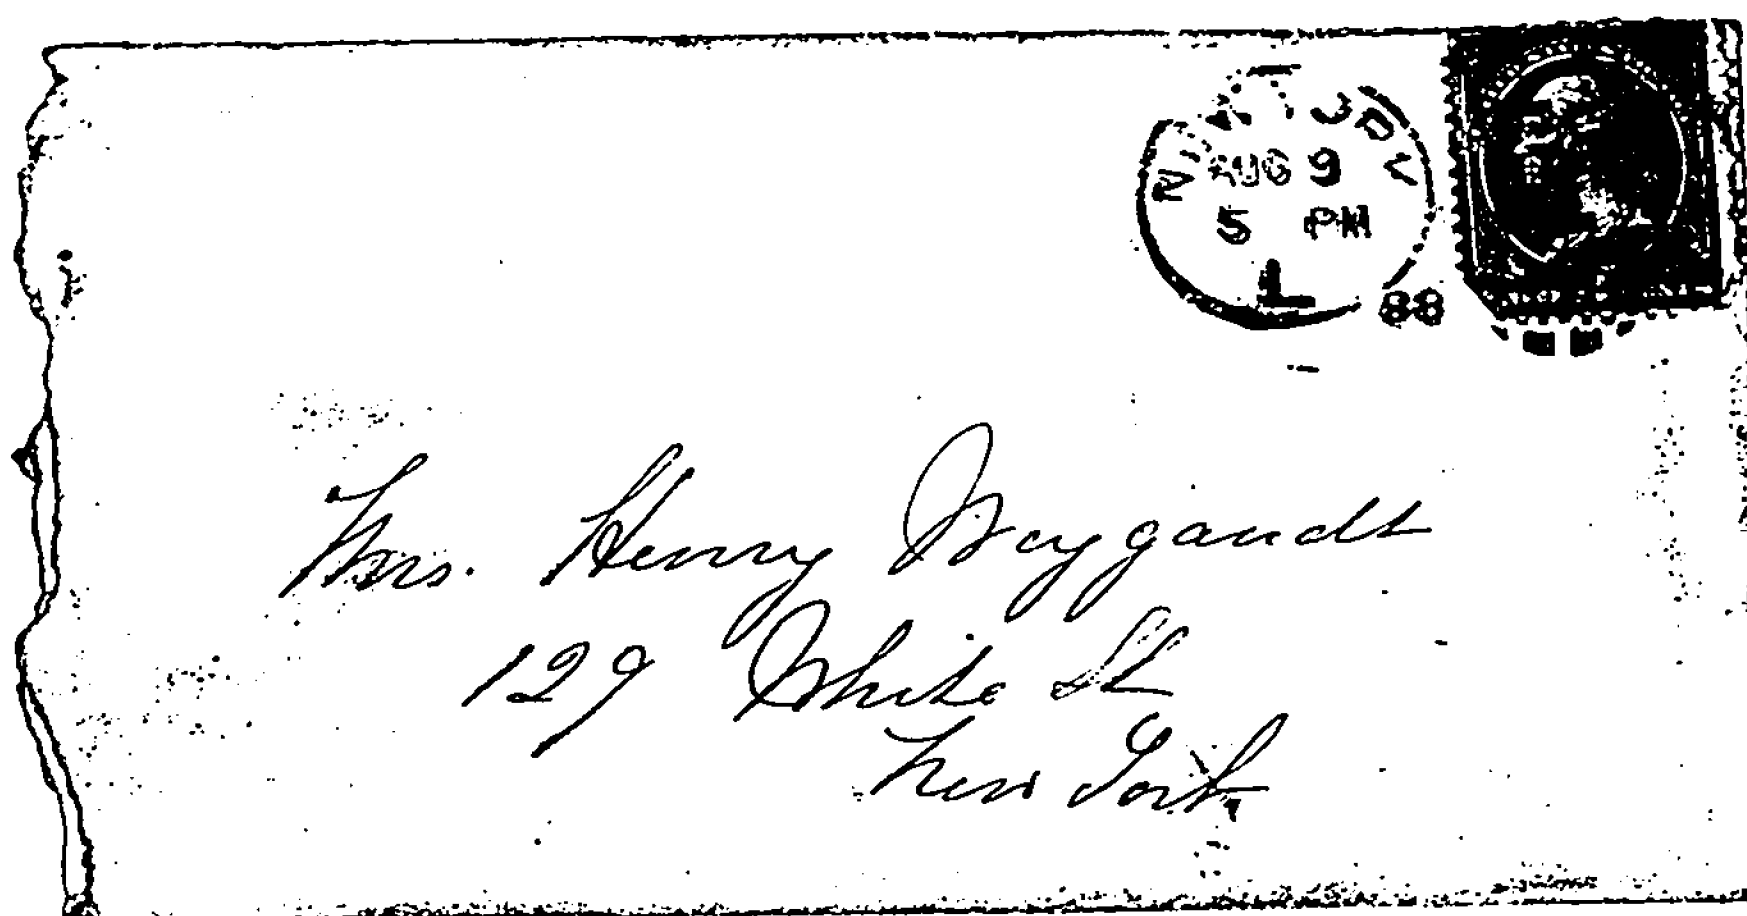 NEW YORK
AUG 9
5 PM
L
88
Mrs. Henry Waygandt
129 White St
New York